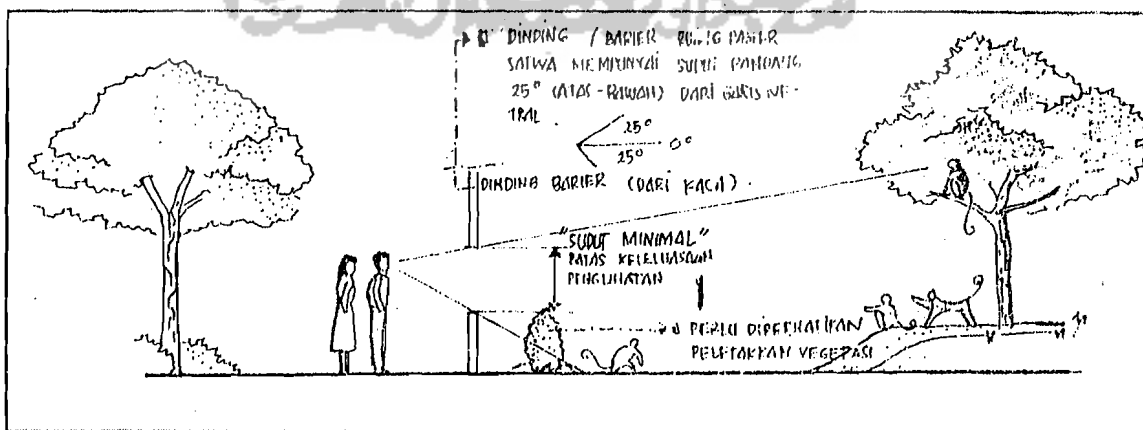 DINDING / BARIER RUANG PAMER
SATWA MEMPUNYAI SUDUT PANDANG
25° (ATAS-BAWAH) DARI GARIS NE-
TRAL.
25°
25° 0°
DINDING BARIER (DARI KACA).
"SUDUT MINIMAL"
BATAS KELELUASAAN
PENGLIHATAN
PERLU DIPERHATIKAN
PELETAKKAN VEGETASI